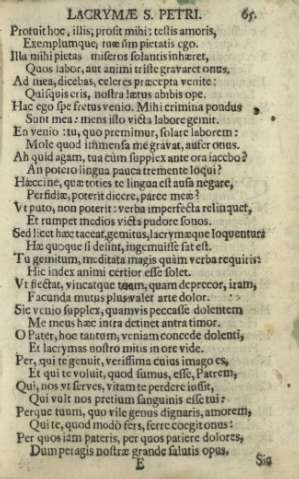 LACRYMÆ S. PETRI. 65.
Protuit hoc, illis; prosit mihi: testis amoris,
Exemplumque, tuæ sim pietatis ego.
Illa mihi pietas miseros solantis inhæret,
Quos labor, aut animi triste gravaret onus.
Ad mea, dicebas, celeres præcepta venite:
Quisquis eris, nostra lætus abibis ope.
Hac ego spe fretus venio. Mihi crimina pondus
Sunt mea: mens isto victa labore gemit.
En venio: tu, quo premimur, solare laborem:
Mole quod immensa me gravat, aufer onus.
Ah quid agam, tua cùm supplex ante ora iacebo?
An potero lingua pauca tremente loqui?
Hæccine, quæ toties te lingua est ausa negare,
Perfidiæ, poterit dicere, parce meæ?
Vt puto, non poterit: verba imperfecta relinquet,
Et rumpet medios victa pudore sonos.
Sed licet hæc taceat, gemitus, lacrymæque loquentur:
Hæ quoque si desint, ingemuisse sat est.
Tu gemitum, meditata magis quàm verba requiris:
Hic index animi certior esse solet.
Vt flectat, vincatque tuam, quam deprecor, iram,
Facunda mutus plus valet arte dolor.
Sic venio supplex, quamvis peccasse dolentem
Me meus hæc intra detinet antra timor.
O Pater, hoc tantum, veniam concede dolenti,
Et lacrymas nostro mitis in ore vide.
Per, qui te genuit, verissima cuius imago es,
Et qui te voluit, quod sumus, esse, Patrem,
Qui, nos vt serves, vitam te perdere iussit,
Qui vult nos pretium sanguinis esse tui:
Perque tuum, quo vile genus dignaris, amorem,
Qui te, quod modò fers, ferre coegit onus:
Per quos iam pateris, per quos patiere dolores,
Dum peragis nostræ grande salutis opus,
E Sia